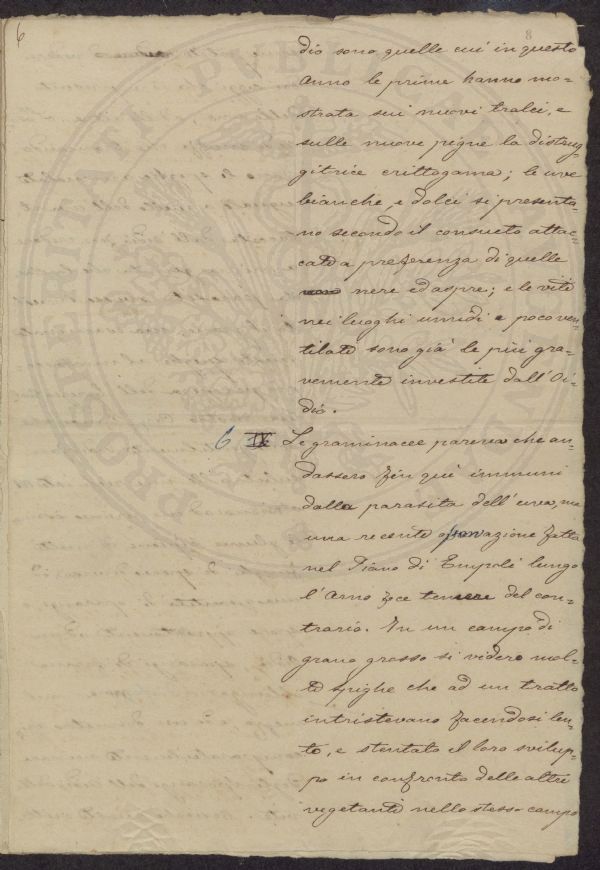 6
8
dio sono quelle cui in questo
anno le prime hanno mo-
strata sui nuovi tralci, e
sulle nuove pigne la distrug-
gitrice crittogama; le uve
bianche, e dolci si presenta-
no secondo il consueto attac-
cate a preferenza di quelle
nere ed aspre; e le viti
nei luoghi umidi e poco ven-
tilati sono già le più gra-
vemente investite dall'Oi-
dio.
6 IX Le graminacee pareva che an-
dassero fin quì immuni
dalla parasita dell'uva, ma
una recente osservazione fatta
nel Piano di Empoli lungo
l'Arno fece temere del con-
trario. In un campo di
grano grosso si videro mol-
te spighe che ad un tratto
intristevano facendosi len-
to, e stentato il loro svilup-
po in confronto delle altre
vegetanti nello stesso campo
PROSPERITATI PUBLICAE